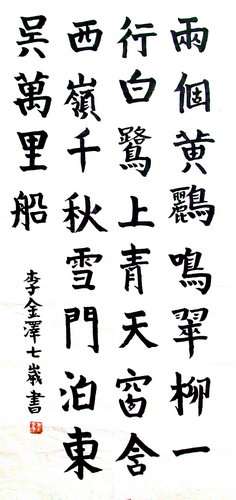 兩個黄鸝鳴翠柳一
行白鷺上青天窗含
西嶺千秋雪門泊東
吳萬里船
李金澤七歲書